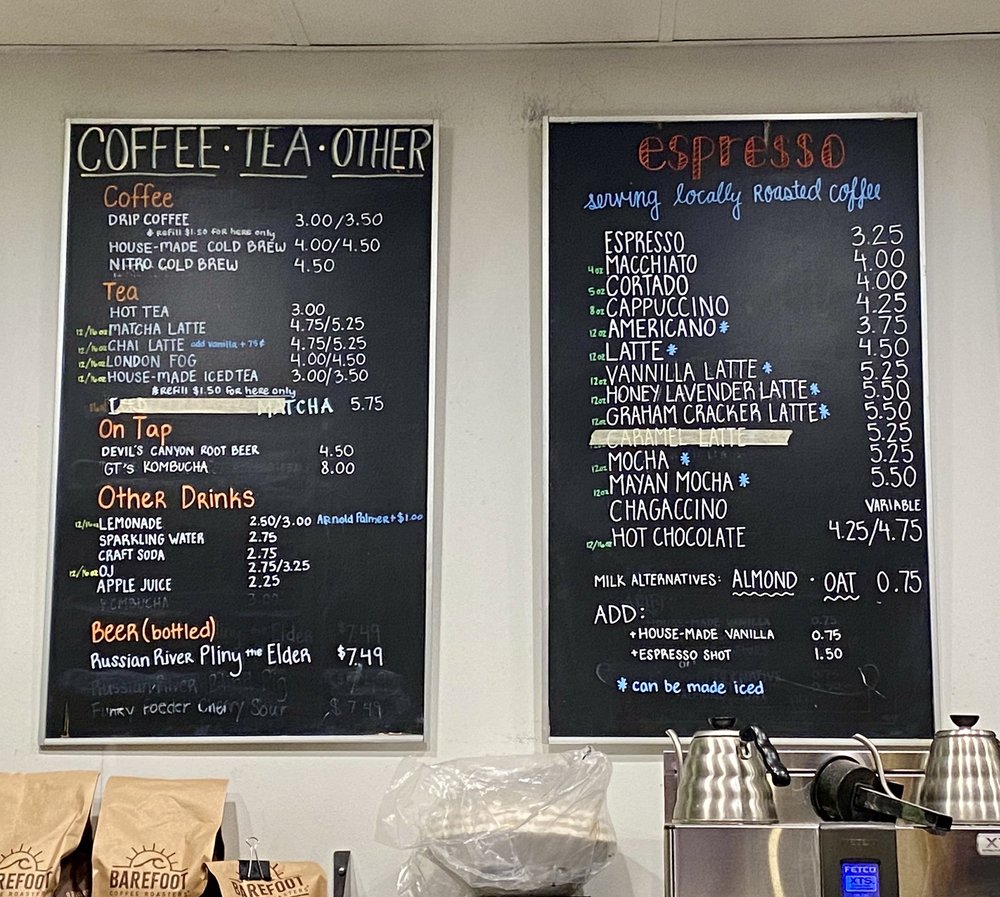 COFFEE · TEA · OTHER
Coffee
DRIP COFFEE 3.00/3.50
* REFILL $1.50 FOR HERE ONLY
HOUSE-MADE COLD BREW 4.00/4.50
NITRO COLD BREW 4.50
Tea
HOT TEA 3.00
12/16oz MATCHA LATTE 4.75/5.25
12/16oz CHAI LATTE add vanilla + 75¢ 4.75/5.25
12/16oz LONDON FOG 4.00/4.50
12/16oz HOUSE-MADE ICED TEA 3.00/3.50
*REFILL $1.50 FOR here only
MATCHA 5.75
On Tap
DEVIL'S CANYON ROOT BEER 4.50
GT's KOMBUCHA 8.00
Other Drinks
12/16oz LEMONADE 2.50/3.00 ARnold Palmer + $1.00
SPARKLING WATER 2.75
CRAFT SODA 2.75
12/16oz OJ 2.75/3.25
APPLE JUICE 2.25
KOMBUCHA 3.00
Beer (bottled)
Russian River Pliny the Elder $7.49
Russian River
Funky Foeder Cherry Sour $7.49
espresso
serving locally Roasted coffee
ESPRESSO 3.25
4oz MACCHIATO 4.00
5oz CORTADO 4.00
8oz CAPPUCCINO 4.25
12oz AMERICANO* 3.75
12oz LATTE * 4.50
12oz VANNILLA LATTE * 5.25
12oz HONEY LAVENDER LATTE* 5.50
12oz GRAHAM CRACKER LATTE* 5.50
CARAMEL LATTE 5.25
12oz MOCHA * 5.25
12oz MAYAN MOCHA * 5.50
CHAGACCINO VARIABLE
12/16oz HOT CHOCOLATE 4.25/4.75
MILK ALTERNATIVES: ALMOND · OAT 0.75
ADD:
+HOUSE-MADE VANILLA 0.75
+ESPRESSO SHOT 1.50
* can be made iced
BAREFOOT
COFFEE ROASTERS
BAREFOOT
COFFEE ROASTERS
BAREFOOT
FETCO
XTS